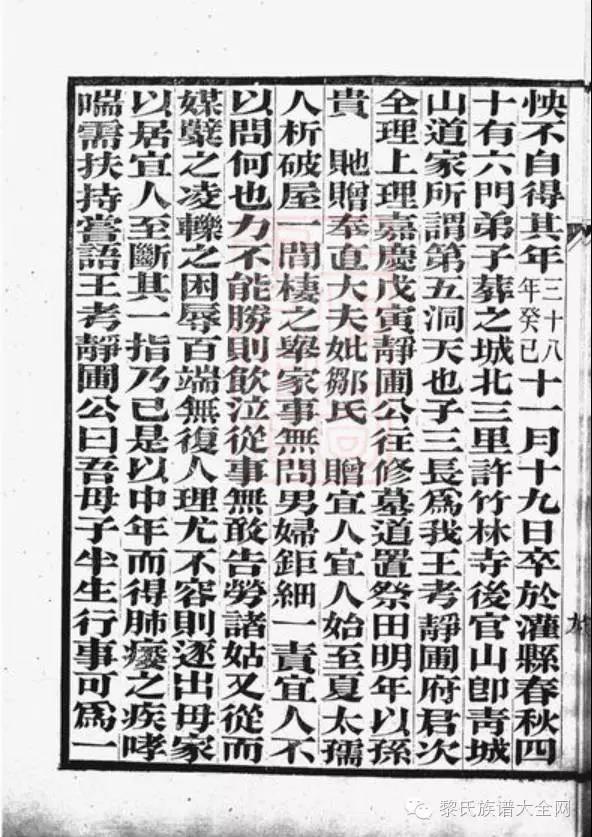 怏不自得其年三十八年癸巳十一月十九日卒於灌縣春秋四
十有六門弟子葬之城北三里許竹林寺後官山卽青城
山道家所謂第五洞天也子三長爲我王考靜圃府君次
全理上理嘉慶戊寅靜圃公往修墓道置祭田明年以孫
貴 貤贈奉直大夫妣鄒氏 贈宜人宜人始至夏太孺
人析破屋一間棲之舉家事無問男婦鉅細一責宜人不
以問何也力不能勝則飲泣從事無敢告勞諸姑又從而
媒糵之凌轢之困辱百端無復人理尤不容則逐出母家
以居宜人至斷其一指乃已是以中年而得肺痿之疾哮
喘需扶持嘗語王考靜圃公曰吾母子半生行事可爲一
黎氏族谱大全网